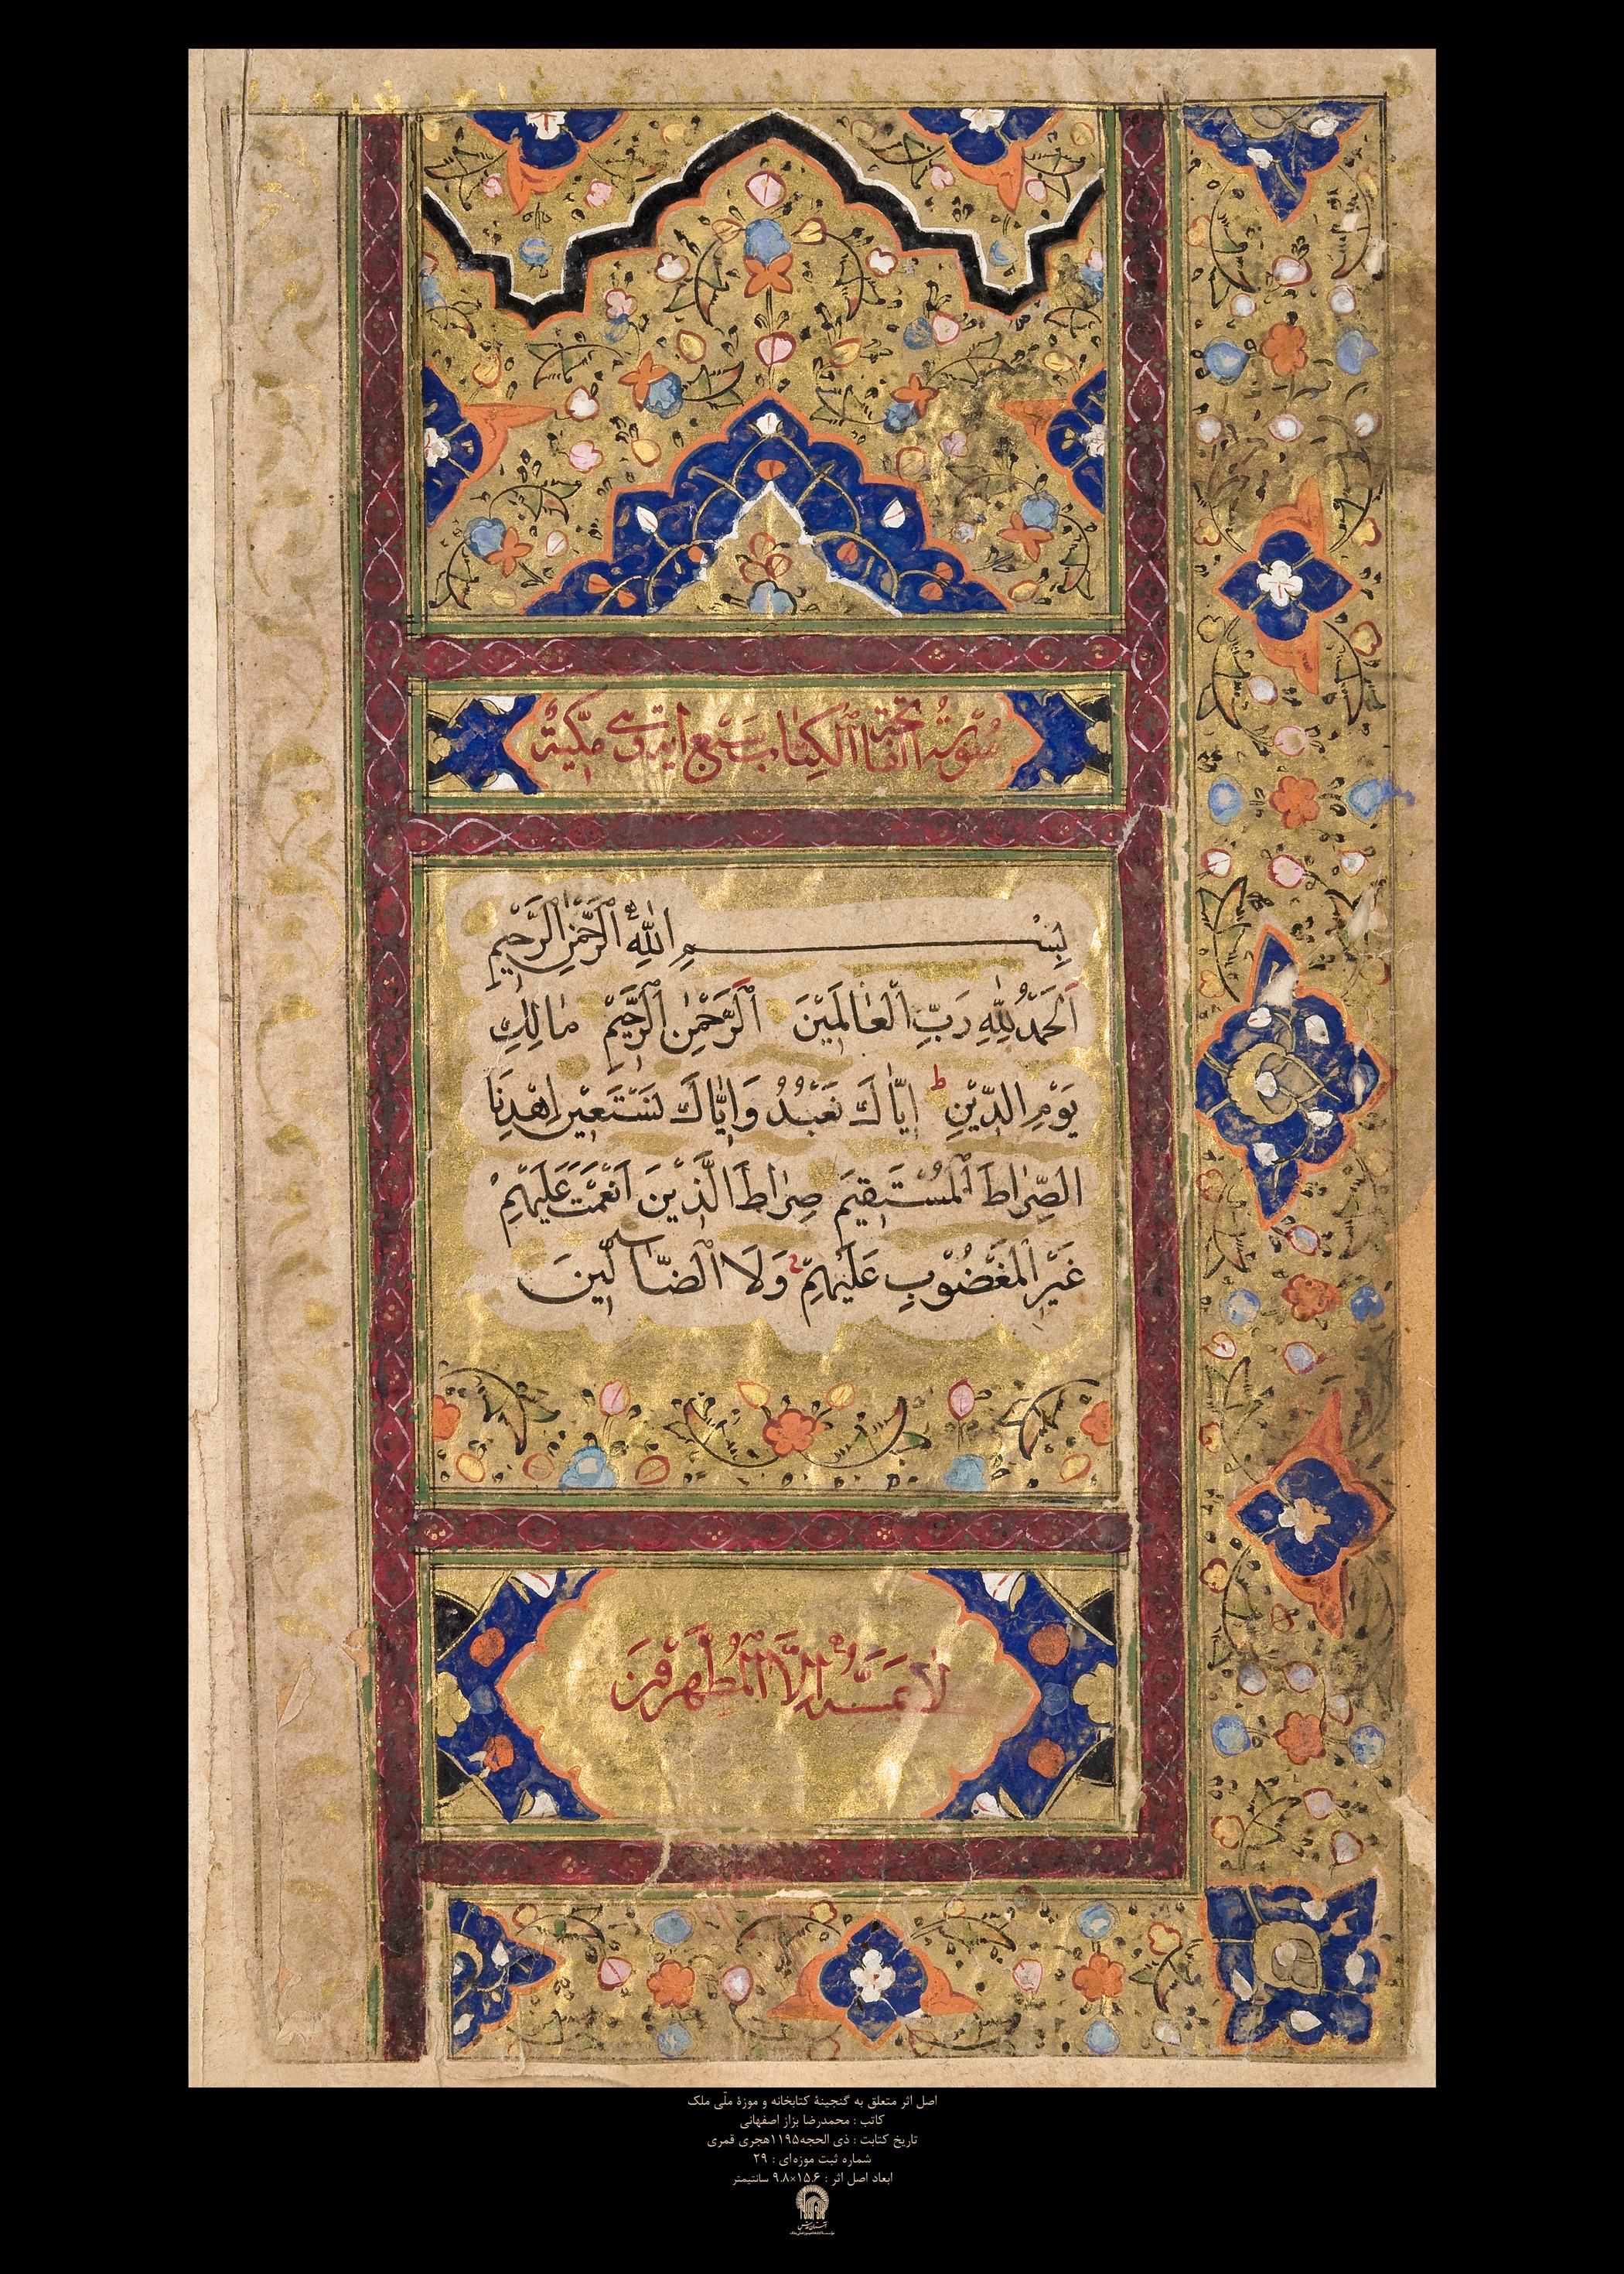 سُورَةُ الْفَاتِحَةِ الْكِتَابِ سَبْعُ اٰيَاتٍ وَهِيَ مَكِّيَّةٌ
بِسْمِ اللّٰهِ الرَّحْمٰنِ الرَّحِيمِ
اَلْحَمْدُ لِلّٰهِ رَبِّ الْعَالَمِيْنَ اَلرَّحْمٰنِ الرَّحِيْمِ مَالِكِ
يَوْمِ الدِّيْنِ ط اِيَّاكَ نَعْبُدُ وَاِيَّاكَ نَسْتَعِيْنُ اِهْدِنَا
الصِّرَاطَ الْمُسْتَقِيْمَ صِرَاطَ الَّذِيْنَ اَنْعَمْتَ عَلَيْهِمْ
غَيْرِ الْمَغْضُوْبِ عَلَيْهِمْ وَلَا الضَّالِّيْنَ
لَا يَمَسُّهُ اِلَّا الْمُطَهَّرُوْنَ
اصل اثر متعلق به گنجینهٔ کتابخانه و موزهٔ ملّی ملک
کاتب : محمدرضا بزاز اصفهانی
تاریخ کتابت : ذی الحجه۱۱۹۵هجری قمری
شماره ثبت موزه‌ای : ۲۹
ابعاد اصل اثر : ۱۵٫۶×۹٫۸ سانتیمتر